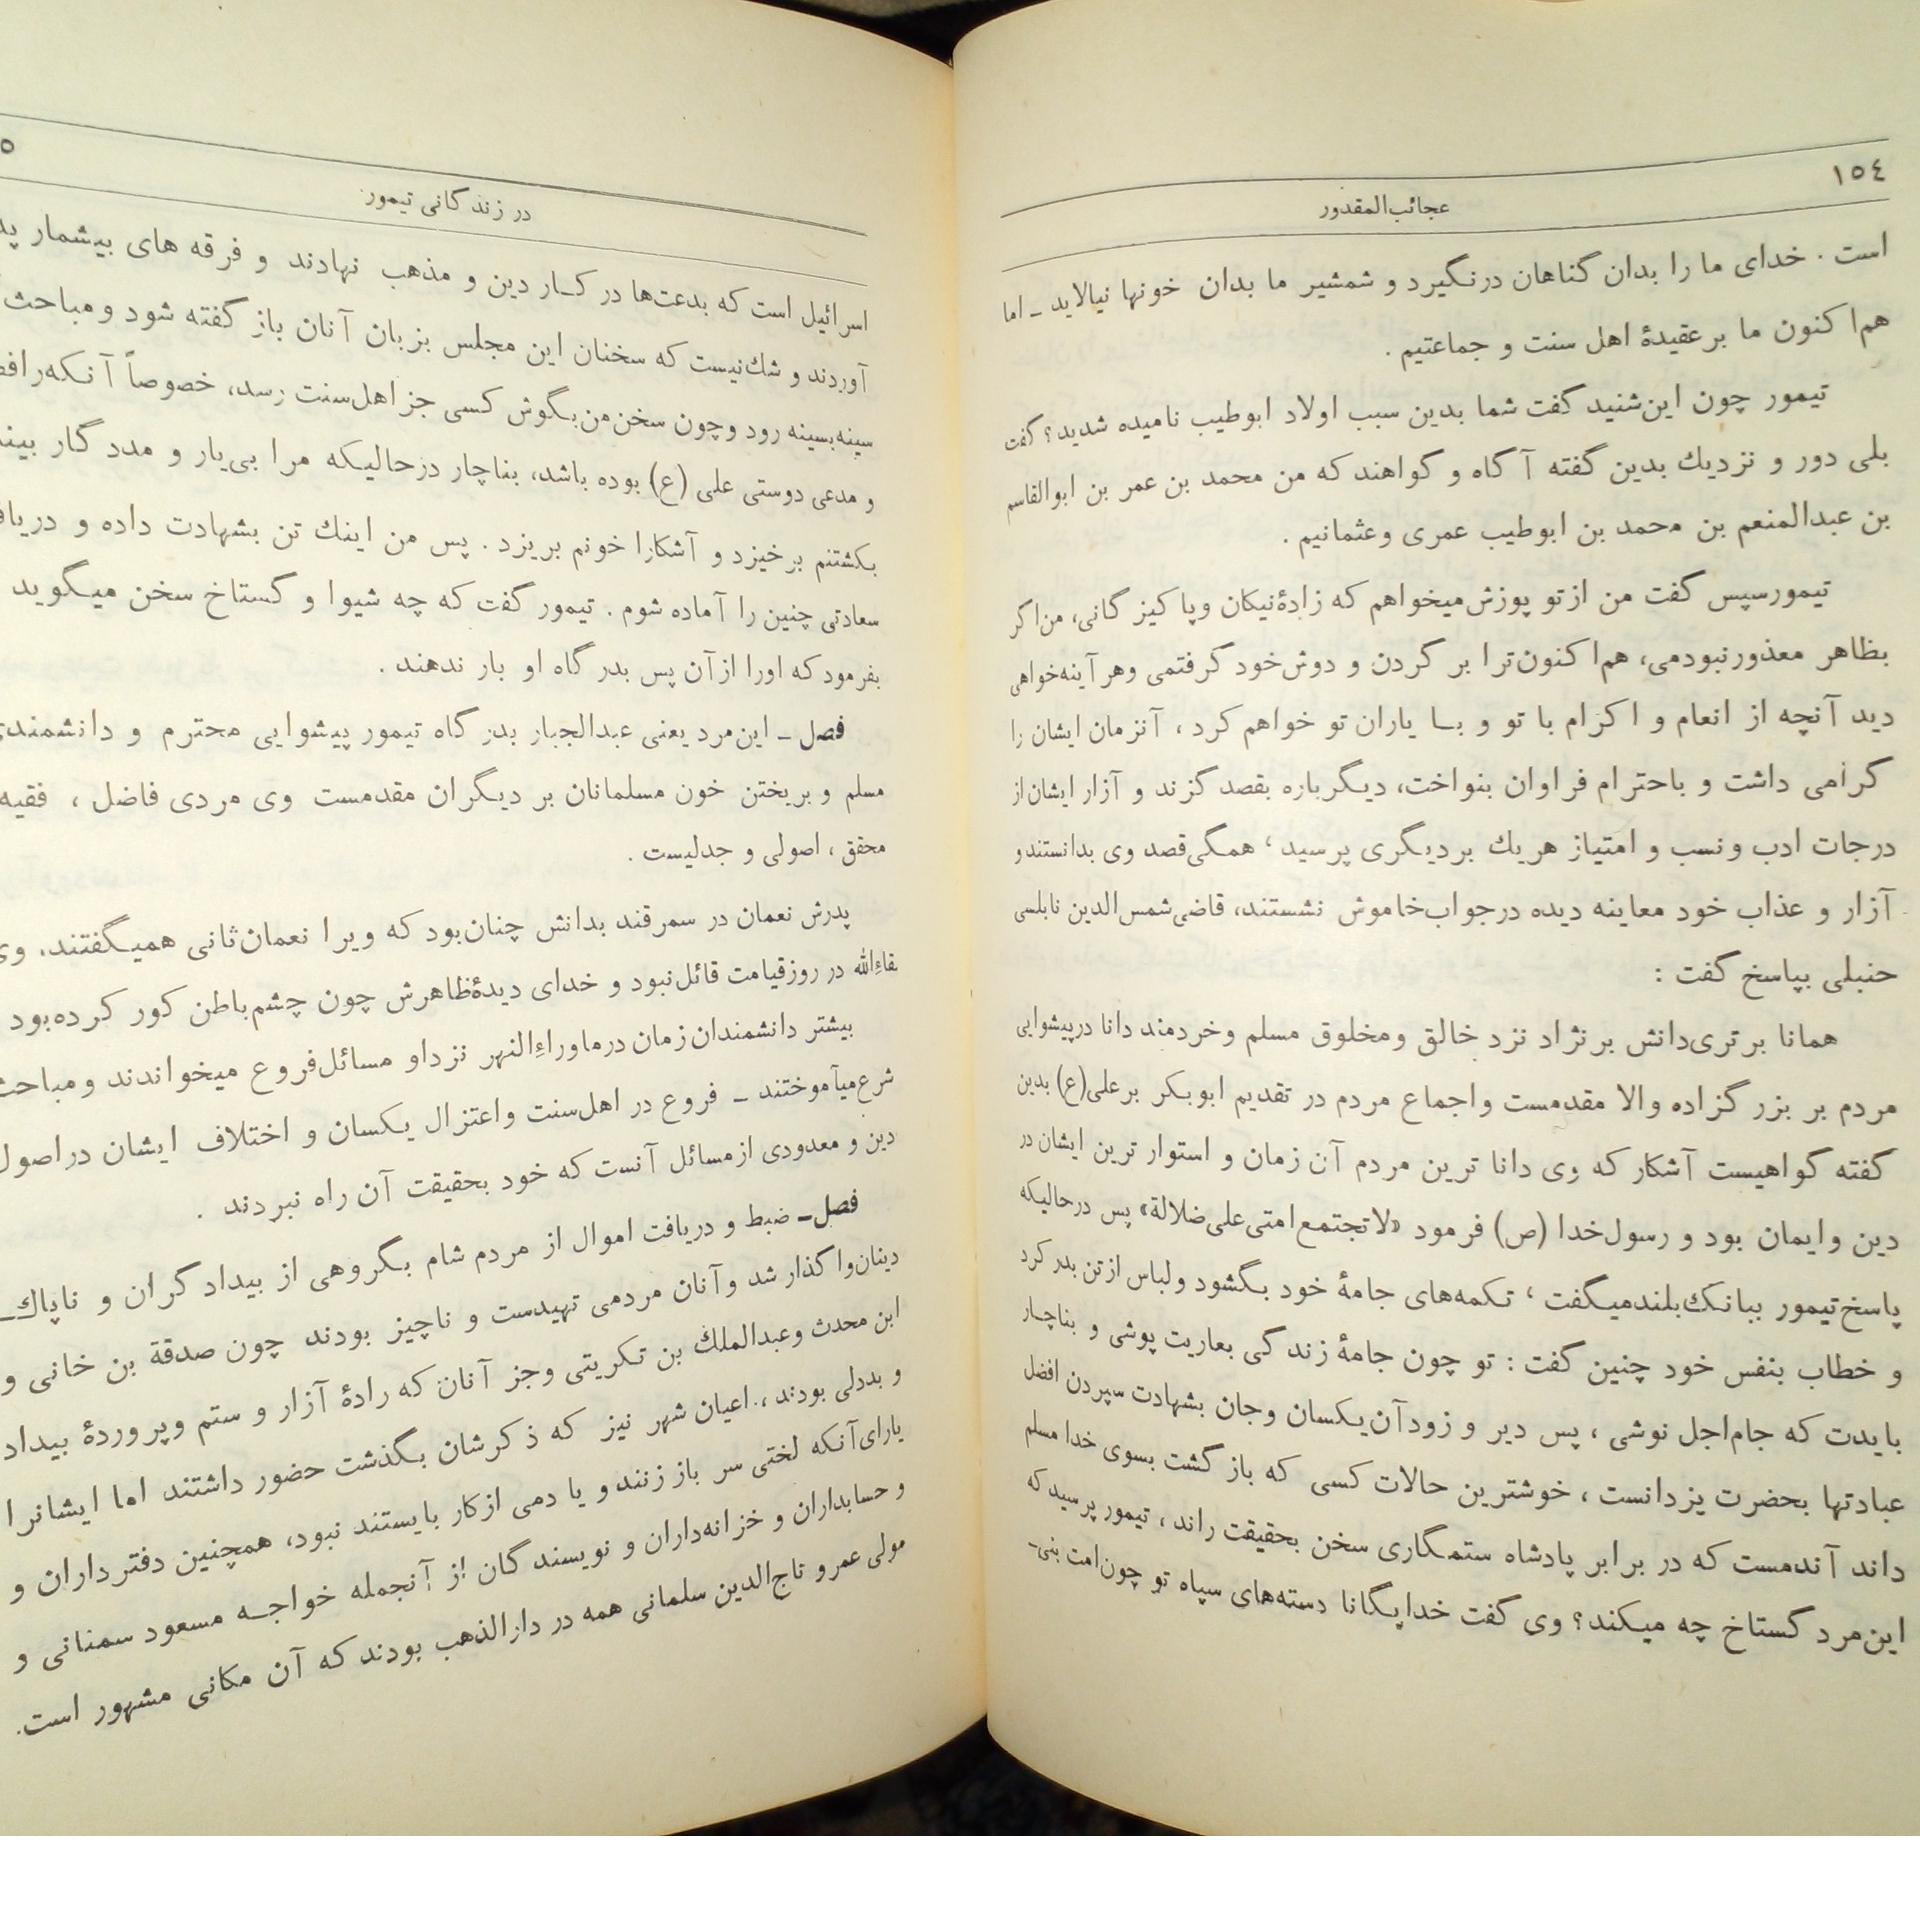 ١٥٤
عجائب‌المقدور
است . خدای ما را بدان گناهان درنگیرد و شمشیر ما بدان خونها نیالاید ـ اما
هم‌اکنون ما برعقیدهٔ اهل سنت و جماعتیم .
تیمور چون این‌شنید گفت شما بدین سبب اولاد ابوطیب نامیده شدید؟ گفت
بلی دور و نزدیك بدین گفته آگاه و گواهند که من محمد بن عمر بن ابوالقاسم
بن عبدالمنعم بن محمد بن ابوطیب عمری وعثمانیم .
تیمورسپس گفت من ازتو پوزش‌میخواهم که زادهٔ‌نیکان وپاکیزگانی، من‌اگر
بظاهر معذورنبودمی، هم‌اکنون‌ترا بر گردن و دوش‌خود گرفتمی وهرآینه‌خواهی
دید آنچه از انعام و اکرام با تو و بـا یاران تو خواهم کرد ، آنزمان ایشان را
گرامی داشت و باحترام فراوان بنواخت، دیگرباره بقصد گزند و آزار ایشان‌از
درجات ادب ونسب و امتیاز هریك بردیگری پرسید ؛ همگی‌قصد وی بدانستندو
آزار و عذاب خود معاینه دیده درجواب‌خاموش نشستند، قاضی‌شمس‌الدین نابلسی
حنبلی بپاسخ گفت :
همانا برتری‌دانش برنژاد نزد خالق ومخلوق مسلم وخردمند دانا درپیشوایی
مردم بر بزرگزاده والا مقدمست واجماع مردم در تقدیم ابوبکر برعلی(ع) بدین
گفته گواهیست آشکار که وی دانا ترین مردم آن زمان و استوار ترین ایشان در
دین وایمان بود و رسول‌خدا (ص) فرمود «لاتجتمع‌امتی‌علی‌ضلالة» پس درحالیکه
پاسخ‌تیمور ببانگ‌بلندمیگفت ؛ تکمه‌های جامهٔ خود بگشود ولباس ازتن بدر کرد
و خطاب بنفس خود چنین گفت : تو چون جامهٔ زندگی بعاریت پوشی و بناچـار
بایدت که جام‌اجل نوشی ، پس دیر و زودآن‌یکسان وجان بشهادت سپردن افضل
عبادتها بحضرت یزدانست ، خوشترین حالات کسی که بازگشت بسوی خدا مسلم
داند آندمست که در برابر پادشاه ستمگاری سخن بحقیقت راند ، تیمور پرسید که
این‌مرد گستاخ چه میکند؟ وی گفت خدایگانا دسته‌های سپاه تو چون‌امت بنی‌ـ
٥
در زندگانی تیمور
اسرائیل است که بدعت‌ها در کـار دین و مذهب نهادند و فرقه های بیشمار
آوردند و شك‌نیست که سخنان این مجلس بزبان آنان باز گفته شود ومباحث
سینه‌بسینه رود وچون سخن‌من‌بگوش کسی جزاهل‌سنت رسد، خصوصاً
و مدعی دوستی علی (ع) بوده باشد، بناچار درحالیکه مرا بی‌یار و مددگار
بکشتنم برخیزد و آشکارا خونم بریزد . پس من اینك تن بشهادت داده و
سعادتی چنین را آماده شوم . تیمور گفت که چه شیوا و گستاخ سخن میگوید
بفرمودکه اورا ازآن پس بدرگاه او بار ندهند .
فصل ـ این‌مرد یعنی عبدالجبار بدرگاه تیمور پیشوایی محترم و
مسلم و بریختن خون مسلمانان بر دیگران مقدمست وی مردی فاضل ، فقیه
محقق ، اصولی و جدلیست .
پدرش نعمان در سمرقند بدانش چنان‌بود که ویرا نعمان‌ثانی همیگفتند.
بقاءالله در روزقیامت قائل‌نبود و خدای دیدهٔ‌ظاهرش چون چشم‌باطن کور کرده‌بود
بیشتر دانشمندان‌زمان درماوراءالنهر نزداو مسائل‌فروع میخواندند
شرع‌میآموختند ـ فروع در اهل‌سنت واعتزال یکسان و اختلاف ایشان دراصول
دین و معدودی ازمسائل آنست که خود بحقیقت آن راه نبردند .
فصل‌ـ ضبط و دریافت اموال از مردم شام بگروهی از بیدادگران و ناپاك‌ـ
دینان‌واگذار شد وآنان مردمی تهیدست و ناچیز بودند چون صدقة بن خانی و
ابن محدث وعبدالملك بن تکریتی وجز آنان که زادهٔ آزار و ستم وپروردهٔ بیداد
و بددلی بودند ، اعیان شهر نیز که ذکرشان بگذشت حضور داشتند اما ایشانرا
یارای‌آنکه لختی سر باز زنند و یا دمی ازکار بایستند نبود، همچنین دفترداران و
و حسابداران و خزانه‌داران و نویسندگان از آنجمله خواجـه مسعود سمنانی و
مولی عمرو تاج‌الدین سلمانی همه در دارالذهب بودندکه آن مکانی مشهور است.